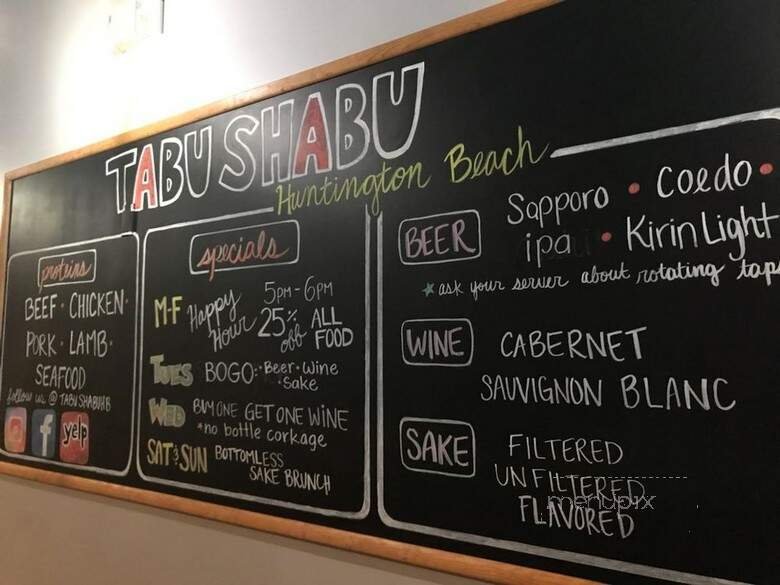 TABU SHABU
Huntington Beach
proteins
BEEF · CHICKEN ·
PORK · LAMB ·
SEAFOOD
follow us @TABUSHABUHB
yelp
specials
M-F Happy Hour 5PM-6PM 25% off ALL FOOD
TUES BOGO: · Beer · Wine
· Sake
WED BUY ONE GET ONE WINE
*no bottle corkage
SAT & SUN BOTTOMLESS
SAKE BRUNCH
BEER Sapporo · Coedo ·
ipa · Kirin Light
* ask your server about rotating taps
WINE CABERNET
SAUVIGNON BLANC
SAKE FILTERED
UNFILTERED
FLAVORED
menupix